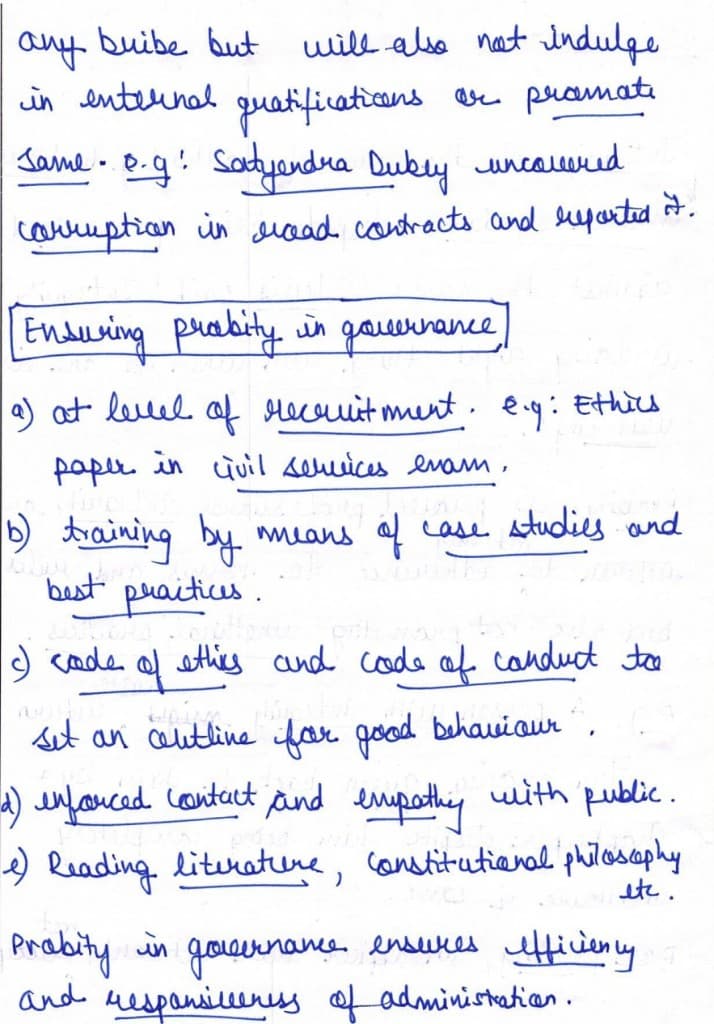 any bribe but will also not indulge
in external gratifications or promote
same. e.g: Satyendra Dubey uncovered
corruption in road contracts and reported it.
Ensuring probity in governance
a) at level of recruitment. e.g: Ethics
paper in civil services exam.
b) training by means of case studies and
best practices.
c) code of ethics and code of conduct to
set an outline for good behaviour.
d) enforced contact and empathy with public.
e) Reading literature, constitutional philosophy
etc.
Probity in governance ensures efficiency
and responsiveness of administration.